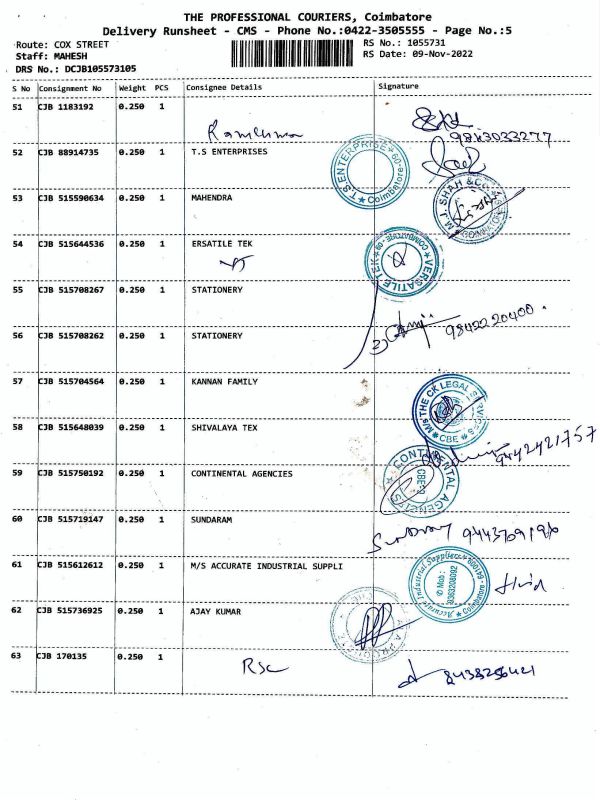 THE PROFESSIONAL COURIERS, Coimbatore
Delivery Runsheet - CMS - Phone No.:0422-3505555 - Page No.:5
Route: COX STREET
RS No.: 1055731
Staff: MAHESH
RS Date: 09-Nov-2022
DRS No.: DCJB105573105
S No Consignment No Weight PCS Consignee Details Signature
51 CJB 1183192 0.250 1
9843033277
52 CJB 88914735 0.250 1 T.S ENTERPRISES
T.S ENTERPRISE Coimbatore
53 CJB 515590634 0.250 1 MAHENDRA
M.T. SHAH & CO. COIMBATORE
54 CJB 515644536 0.250 1 ERSATILE TEK
VT
VERSATILE TEK COIMBATORE
55 CJB 515708267 0.250 1 STATIONERY
56 CJB 515708262 0.250 1 STATIONERY
9842220400
57 CJB 515704564 0.250 1 KANNAN FAMILY
M/s THE CK LEGAL SERVICES CBE
58 CJB 515648039 0.250 1 SHIVALAYA TEX
9442421757
59 CJB 515750192 0.250 1 CONTINENTAL AGENCIES
CONTINENTAL AGENCIES CBE-9
60 CJB 515719147 0.250 1 SUNDARAM
61 CJB 515612612 0.250 1 M/S ACCURATE INDUSTRIAL SUPPLI
Accurate Industrial Suppliers Coimbatore - 641009
Mob :
9363208092
62 CJB 515736925 0.250 1 AJAY KUMAR
63 CJB 170135 0.250 1
RSC
8438256421